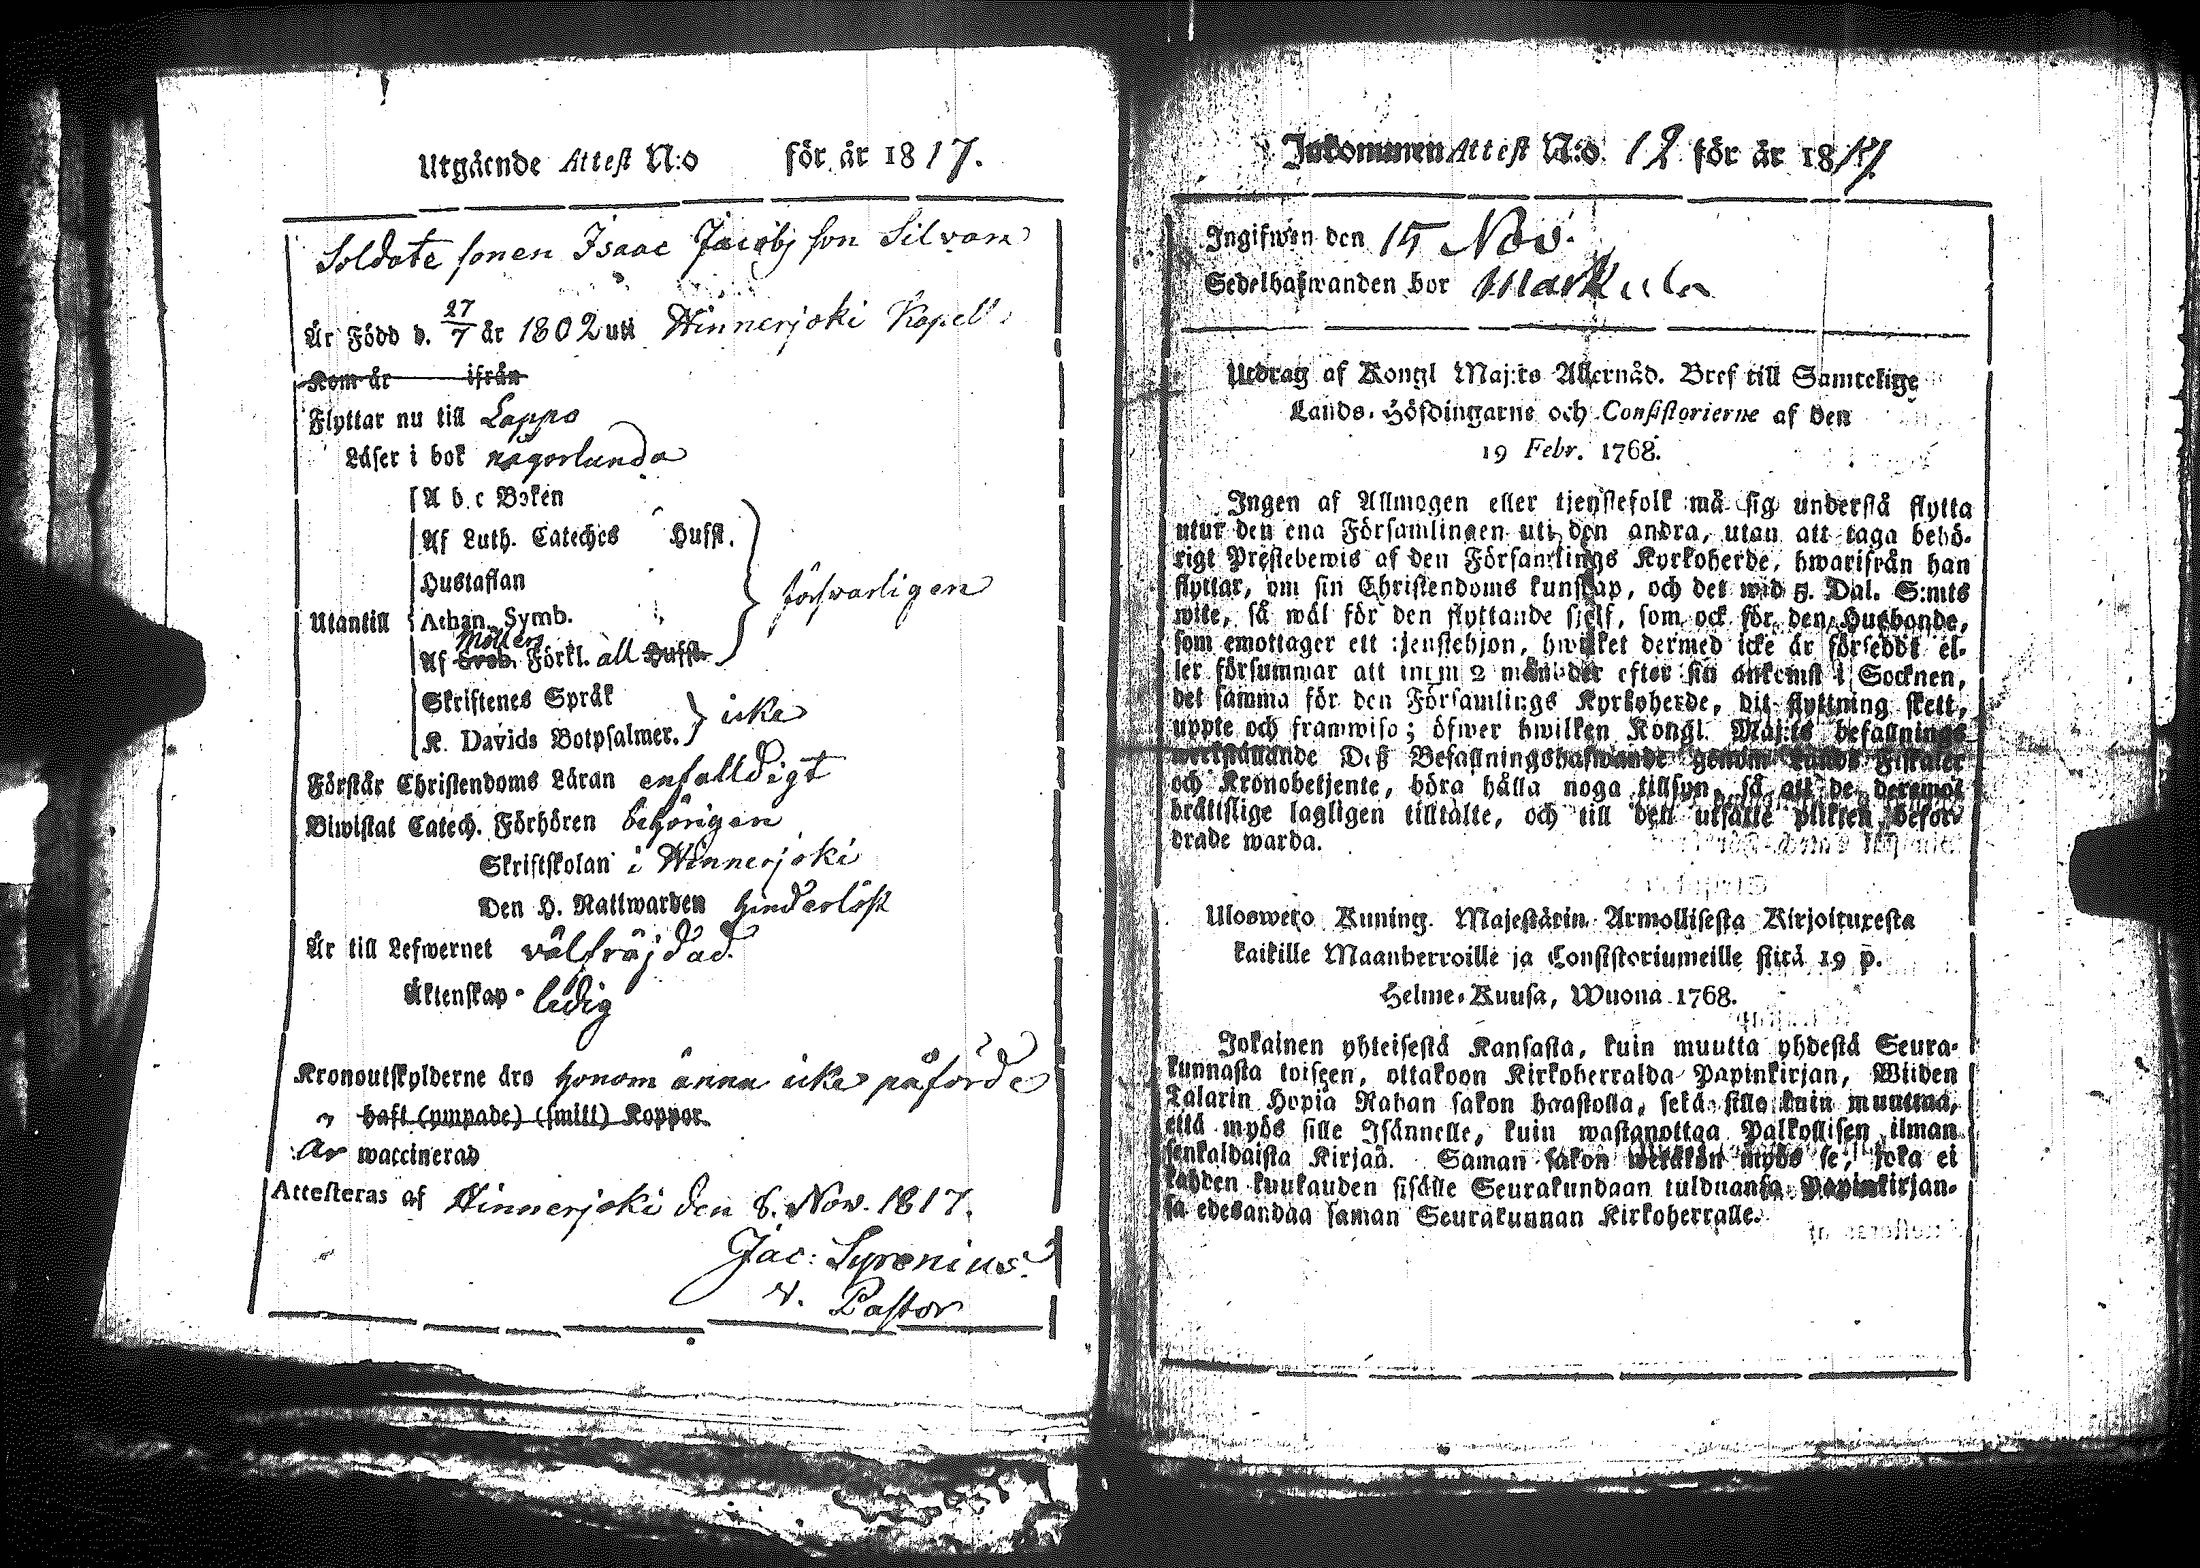 Utgående Attest N:o för år 1817.
Soldate sonen Isaac Jacobs son Silvan
Är Född d. 27/7 år 1802 uti Hinnerjoki Kapell
Kom år ifrån
Flyttar nu till Lappo
Läser i bok någorlunda
A b c Boken
Af Luth. Cateches Husst.
Hustaflan
Utantill Athan. Symb. försvarligen
Möllers
Af Sveb. Förkl. all Husst.
Skriftenes Språk
K. Davids Botpsalmer. icke
Förstår Christendoms Läran enfalldigt
Biwistat Catech. Förhören behörigen
Skriftskolan i Hinnerjoki
Den H. Nattwarden hinderlöst
Är till Lefwernet välfräjdad
Äktenskap ledig
Kronoutskylderne äro honom ännu icke påförde
haft (ympade) (smitt) Koppor.
Är waccinerad
Attesteras af Hinnerjoki den 8. Nov. 1817.
Jac: Syrenius
V. Pastor
Inkommen Attest N:o 12 för år 1817
Ingifwen den 15 Nov.
Sedelhafwanden bor Markula
Utdrag af Kongl Maj:ts Allernåd. Bref till Samtelige
Lands-Höfdingarne och Consistorierne af den
19 Febr. 1768.
Ingen af Allmogen eller tjenstefolk må sig understå flytta
utur den ena Församlingen uti den andra, utan att taga behö-
rigt Prestebewis af den Församlings Kyrkoherde, hwarifrån han
flyttar, om sin Christendoms kunskap, och det wid 5. Dal. S:mts
wite, så wäl för den flyttande sjelf, som ock för den Husbonde,
som emottager ett tjenstehjon, hwilket dermed icke är försedt el-
ler försummar att inom 2 månader efter sin ankomst i Socknen,
det samma för den Församlings Kyrkoherde, dit flyttning skett,
uppte och framwisa; öfwer hwilken Kongl. Maj:ts befallnings
werkställande Deß Befallningshafwande genom Lands Fiskaler
och Kronobetjente, böra hålla noga tillsyn, så att de deremot
bråttslige lagligen tilltalte, och till den utsatte plikten befor-
drade warda.
Ulosweto Kuning. Majestätin Armollisesta Kirjoituxesta
kaikille Maanherroille ja Consistoriumeille siitä 19 p.
Helme-Kuusa, Wuona 1768.
Jokainen yhteisestä Kansasta, kuin muutta yhdestä Seura-
kunnasta toiseen, ottakoon Kirkoherralda Papinkirjan, Wiiden
Talarin Hopia Rahan sakon haastolla, sekä sille kuin muuttaa,
että myös sille Isännelle, kuin wastanottaa Palkollisen ilman
senkaldaista Kirjaa. Saman sakon wetäkön myös se, joka ei
kahden kuukauden sisälle Seurakundaan tulduansa Papinkirjan-
sa edesandaa saman Seurakunnan Kirkoherralle.